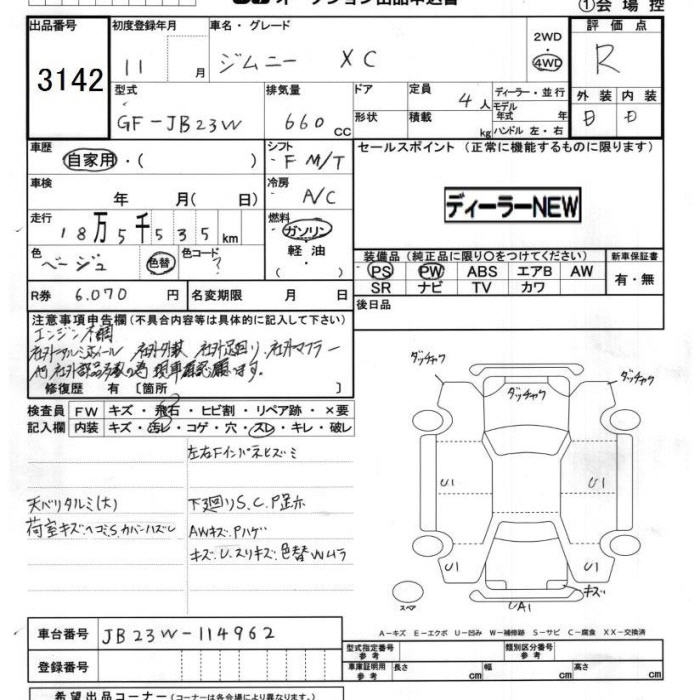 オークション出品申込書
①会場控
出品番号 初度登録年月 車名・グレード 評価点
3142 11 月 ジムニー XC 2WD 4WD R
型式 排気量 ドア 定員 ディーラー・並行 外装 内装
GF-JB23W 660 CC 形状 4人 積載 kg モデル年式 年 ハンドル 左・右 D D
車歴 シフト セールスポイント (正常に機能するものに限ります)
自家用・( ) F M/T
車検 冷房 ディーラーNEW
年 月( 日) A/C
走行 燃料
18万5千535km ガソリン
軽油
色 色替 色コード 装備品 (純正品に限り○をつけてください) 新車保証書
ベージュ ? PS PW ABS エアB AW 有・無
SR ナビ TV カワ
R券 6.070 円 名変期限 月 日 後日品
注意事項申告欄 (不具合内容等は具体的に記入して下さい)
エンジン不調
社外アルミホイール 社外外装 社外足回り 社外マフラー
他社外部品多数の為 現車確認願います。
修復歴 有 〔箇所 〕
検査員 FW キズ・飛石・ヒビ割・リペア跡・×要
記入欄 内装 キズ・汚レ・コゲ・穴・スレ・キレ・破レ
左右Fインパネヒズミ
天ベリタルミ(大) 下廻りS.C.P足ホ
荷室キズ・ヘコミ.S.カバーハズレ AWキズ・Pハゲ
キズ.U.スリキズ.色替Wムラ
ダッチャク ダッチャク ダッチャク
U1 U1
U1 U1
キズ
スペア UA1
A-キズ E-エクボ U-凹み W-補修跡 S-サビ C-腐食 XX-交換済
車台番号 JB23W-114962
登録番号
型式指定番号 参考 類別区分番号 参考
車庫証明用 参考 長さ cm 幅 cm 高さ cm
希望出品コーナー (コーナーは各会場により異なります。)